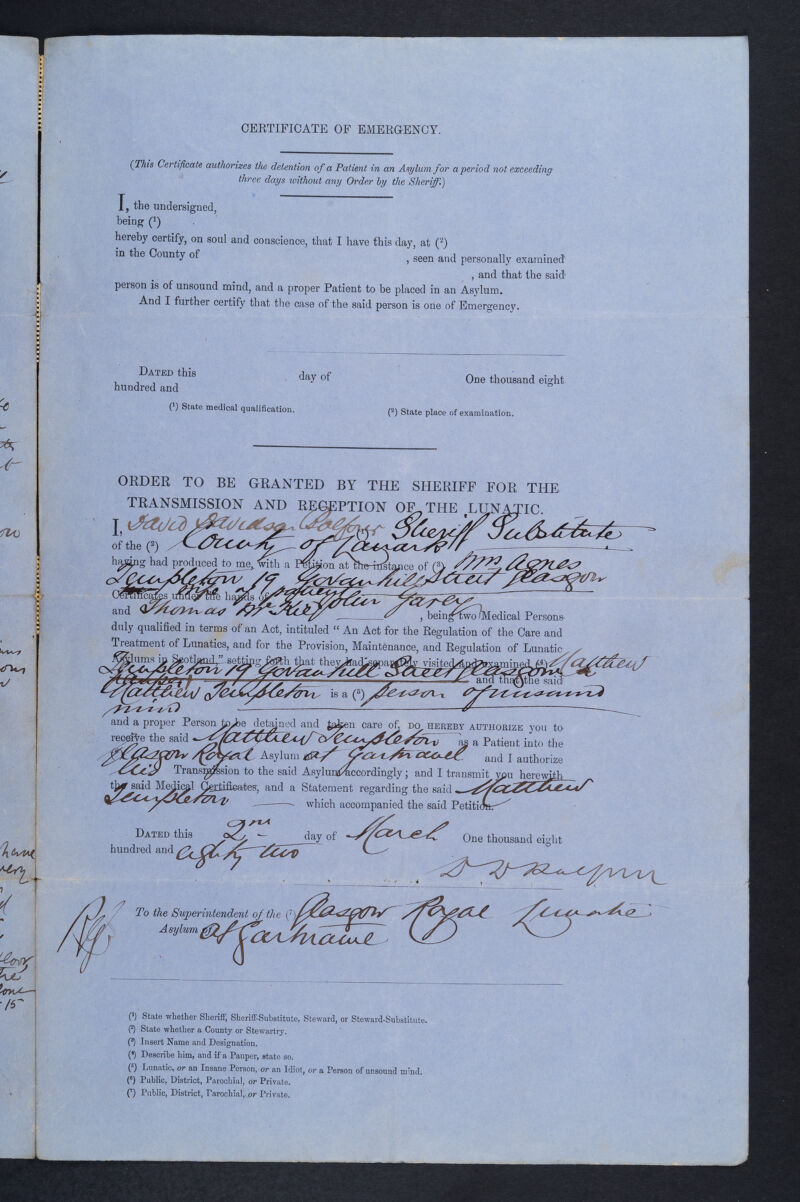 CERTIFICATE OF EMERGENCY.
(This Certificate authorizes the detention of a Patient in an Asylum for a period not exceeding
three days without any Order by the Sheriff.)
I, the undersigned,
being (1)
hereby certify, on soul and conscience, that I have this day, at (2)
in the County of , seen and personally examined
, and that the said
person is of unsound mind, and a proper Patient to be placed in an Asylum.
And I further certify that the case of the said person is one of Emergency.
DATED this day of One thousand eight
hundred and
(1) State medical qualification. (2) State place of examination.
ORDER TO BE GRANTED BY THE SHERIFF FOR THE
TRANSMISSION AND RECEPTION OF THE LUNATIC.
I, David Davidson Balfour Sheriff Substitute
of the (2) County of Lanark
having had produced to me, with a Petition at the instance of (3) Mrs Agnes
Templeton 19 Govanhill Street Glasgow
wife of patient
Certificates under the hands of John
and Thomas , being two Medical Persons
duly qualified in terms of an Act, intituled "An Act for the Regulation of the Care and
Treatment of Lunatics, and for the Provision, Maintenance, and Regulation of Lunatic
Asylums in Scotland," setting forth that they had separately visited and examined (4) Matthew
Templeton 19 Govanhill Street Glasgow
and that the said
Matthew Templeton is a (5) person of unsound
mind
and a proper Person to be detained and taken care of, DO HEREBY AUTHORIZE you to
receive the said Matthew Templeton as a Patient into the
Glasgow Royal Asylum at Gartnavel and I authorize
his Transmission to the said Asylum accordingly; and I transmit you herewith
the said Medical Certificates, and a Statement regarding the said Matthew
Templeton which accompanied the said Petition.
DATED this 2nd day of March One thousand eight
hundred and eighty two
D. D Balfour
To the Superintendent of the (7) Glasgow Royal Lunatic
Asylum at Gartnavel
(1) State whether Sheriff, Sheriff-Substitute, Steward, or Steward-Substitute.
(2) State whether a County or Stewartry.
(3) Insert Name and Designation.
(4) Describe him, and if a Pauper, state so.
(5) Lunatic, or an Insane Person, or an Idiot, or a Person of unsound mind.
(6) Public, District, Parochial, or Private.
(7) Public, District, Parochial, or Private.